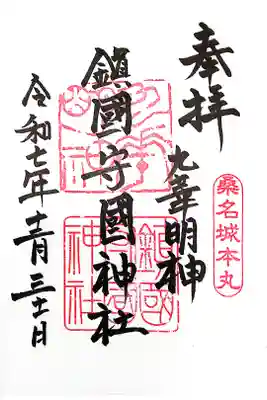 奉拝
桑名城本丸
九華明神
鎮國守國神社
鎮國守國神社
令和七年十二月三十一日